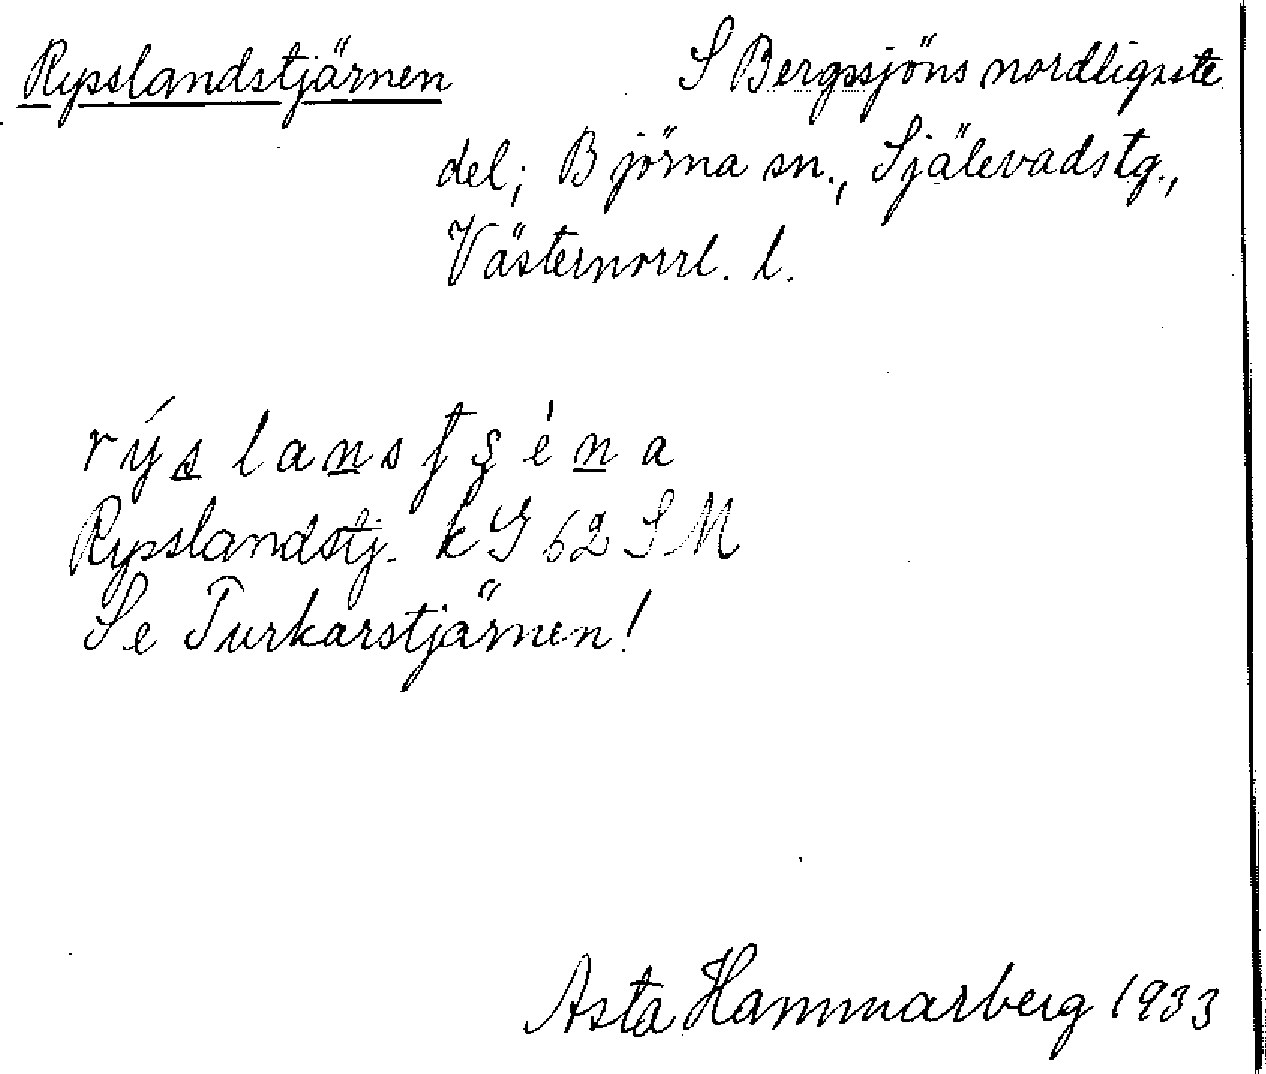 Rysslandstjärnen S Bergssjöns nordligaste
del; Björna sn., Själevadstg.,
Västernorrl. l.
Rysslandstj. kG 62 SM
Se Turkarstjärnen!
Asta Hammarberg 1933